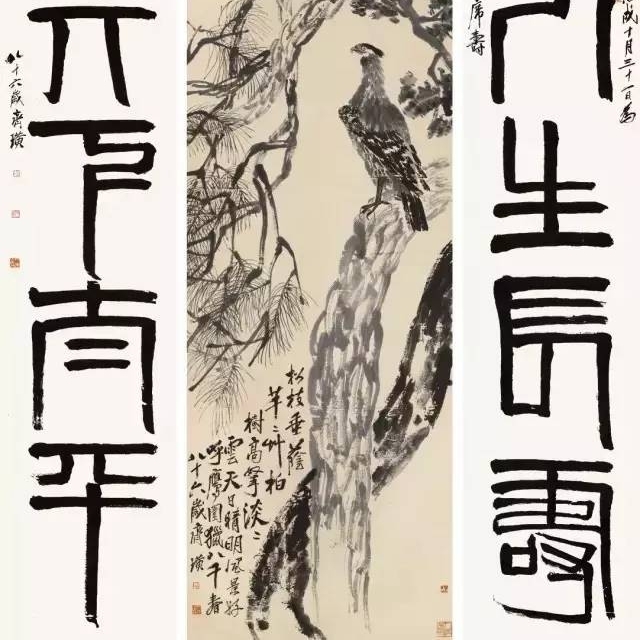 戌十月三十一日為
人生長壽
席壽
松枝垂蔭
芊芊艸柏
樹高擎淡淡
雲天日晴明風景好
呼鷹圍獵八千春
八十六歲齊璜
天下太平
八十六歲齊璜